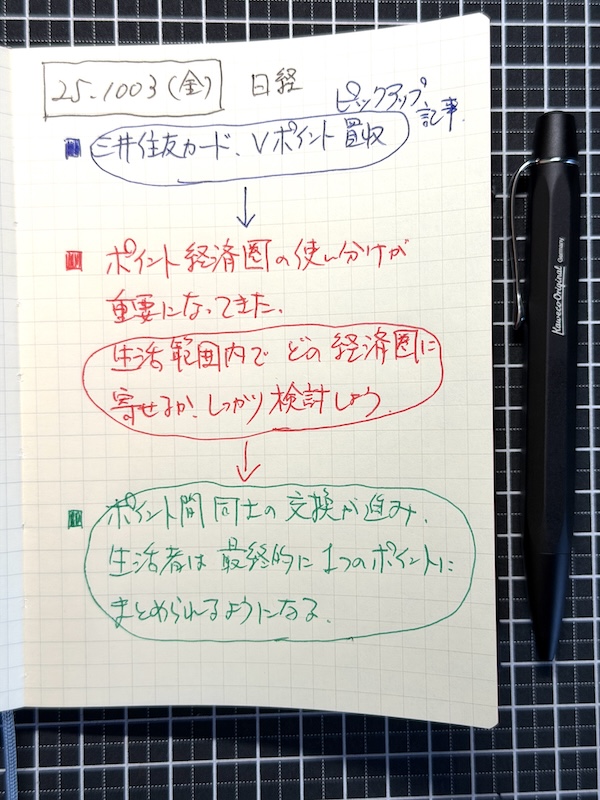 25.1003(金) 日経
ピックアップ記事.
三井住友カード、Vポイント買収
ポイント経済圏の使い分けが
重要になってきた.
生活範囲内でどの経済圏に
寄せるか.しっかり検討しよう.
ポイント間同士の交換が進み.
生活者は最終的に1つのポイントに
まとめられるようになる.
Kaweco Original Germany